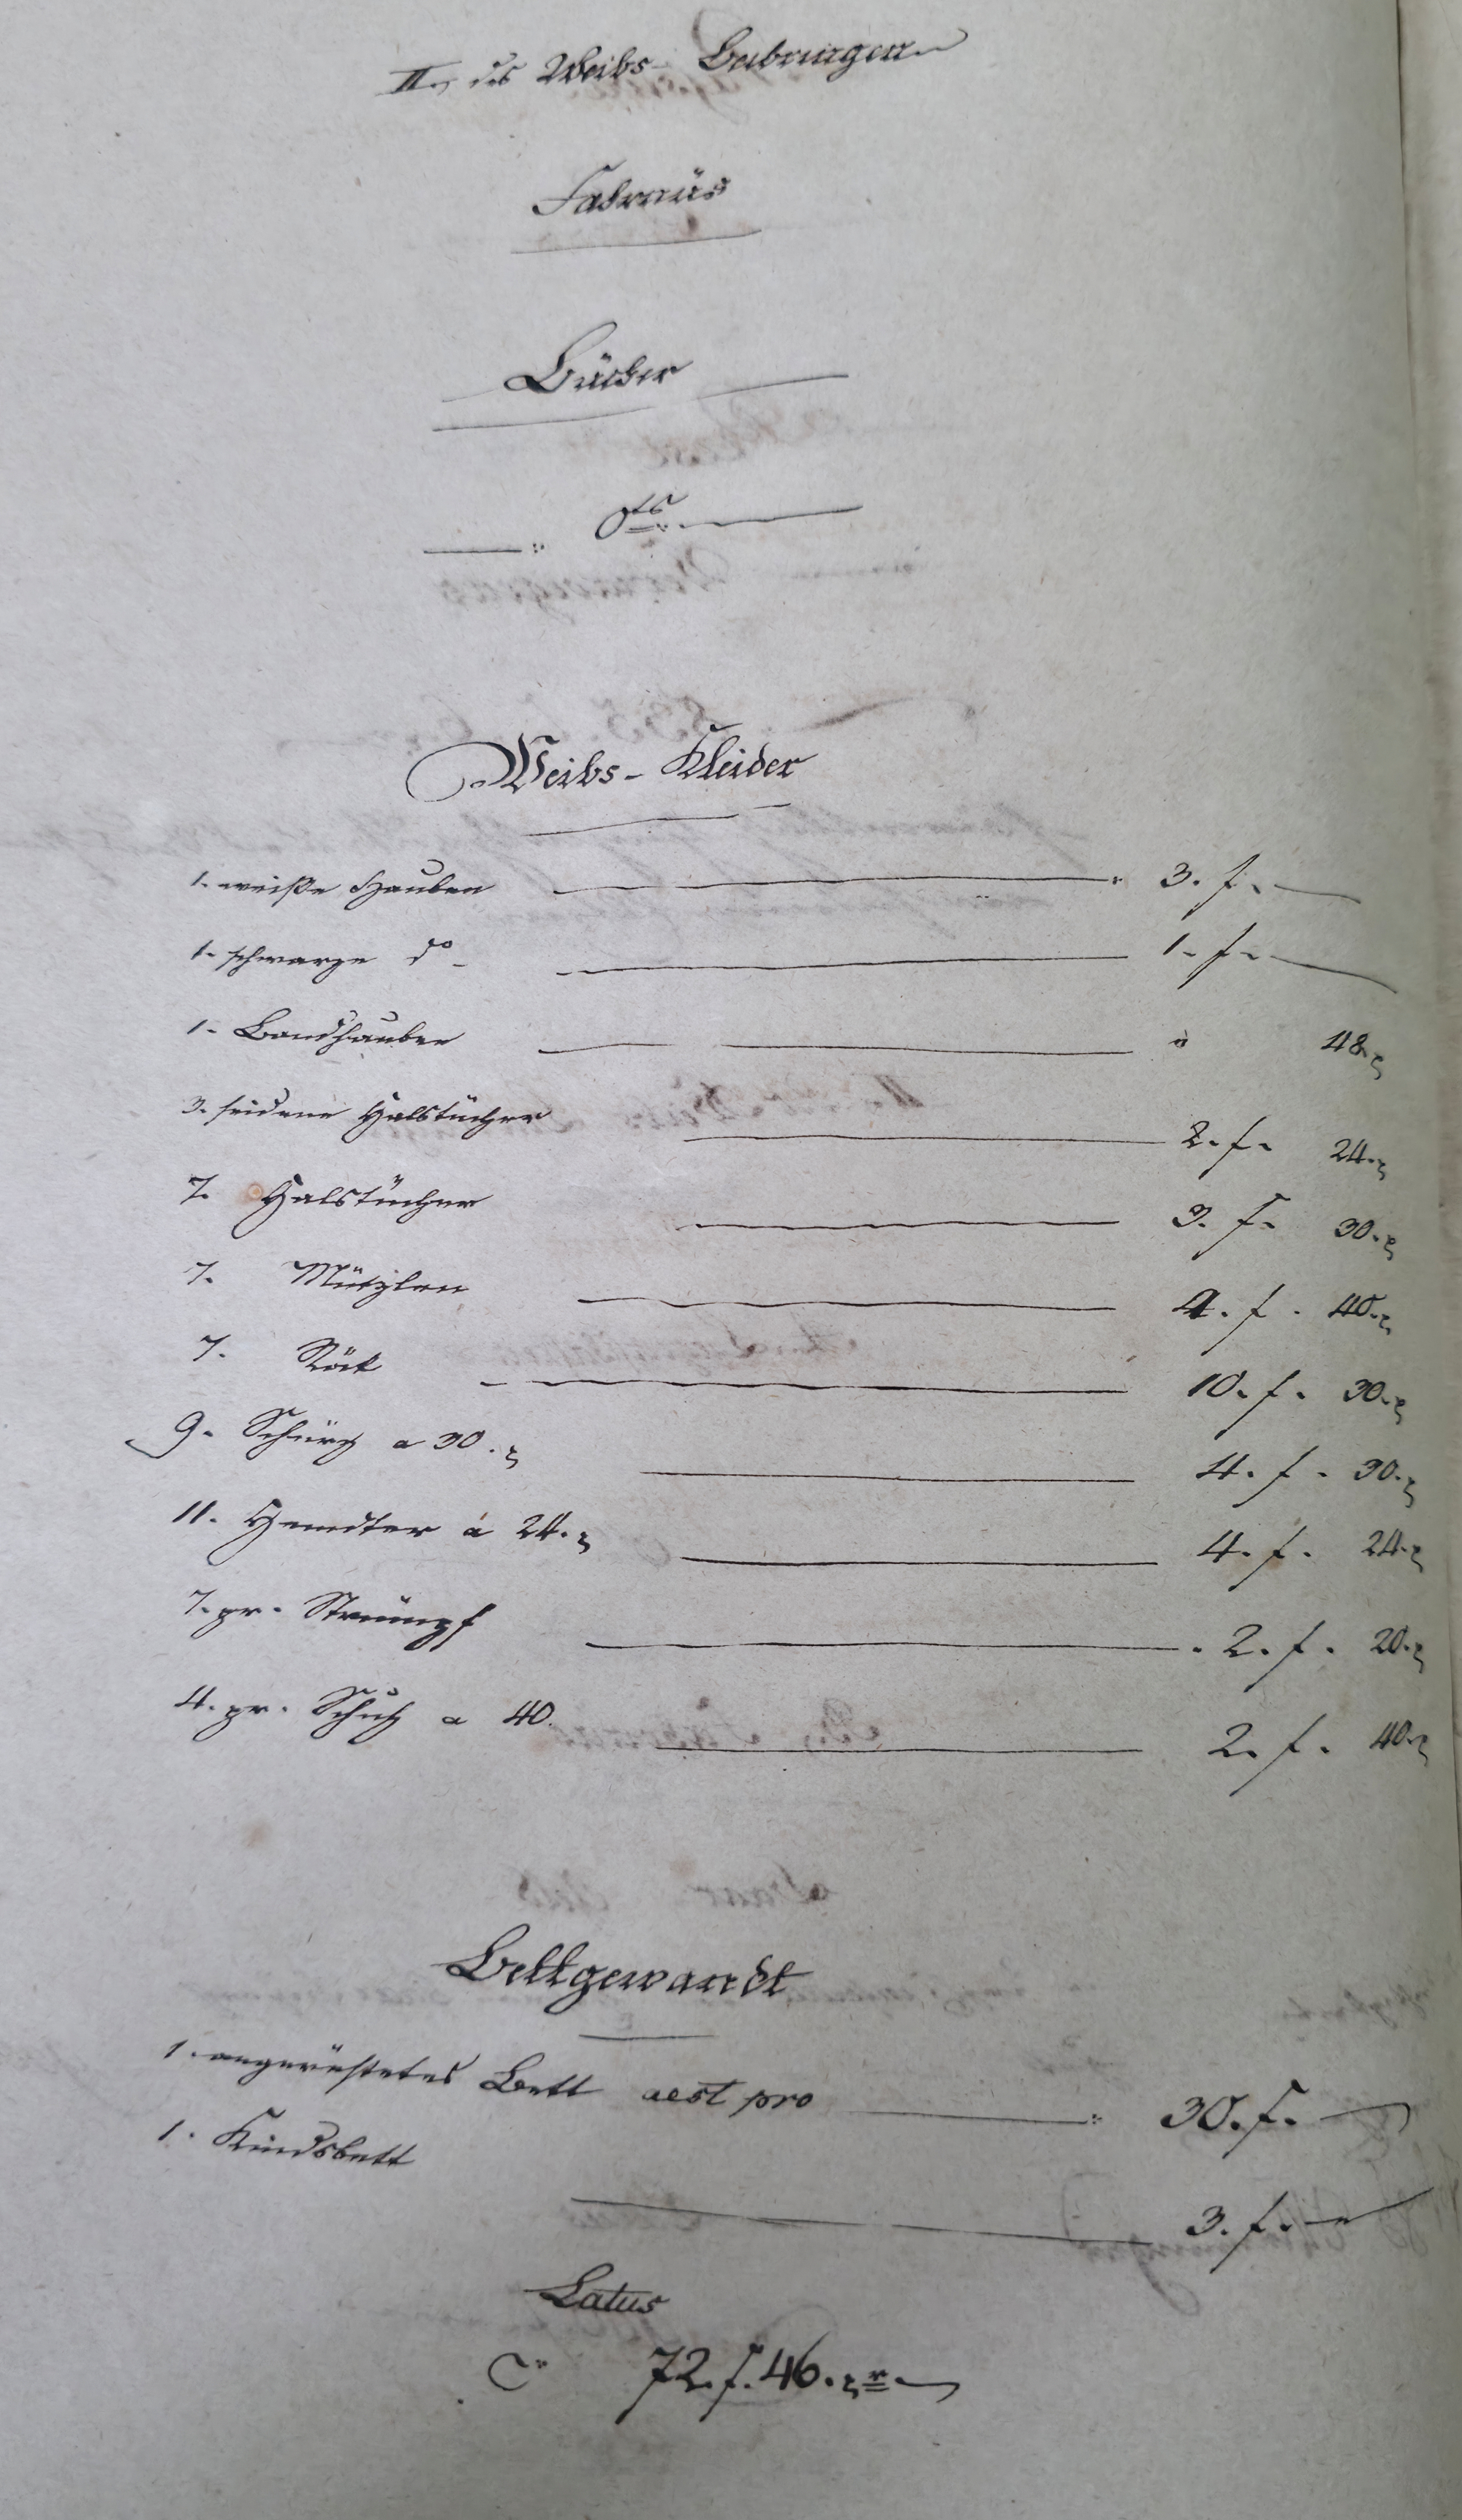 II., des Weibs- Beibringen
Fahrnüs
Bücher
0ts.
Weibs-Kleider
1. weiße Hauben 3. f.
1. schwarze do 1. f.
1. Bandhauben " 48. x
3. seidene Halstücher 2. f. 24. x
7. Halstücher 3. f. 30. x
7. Mützlen 4. f. 40. x
7. Röck 10. f. 30. x
9. Schürz a 30. x 4. f. 30. x
11. Hemdter a 24. x 4. f. 24. x
7. pr. Strümpf 2. f. 20. x
4. pr. Schuh a 40. 2. f. 40. x
Bettgewandt
1. angerüstetes Bett aest pro 30. f.
1. Kindsbett 3. f.
Latus
72. f. 46. xr